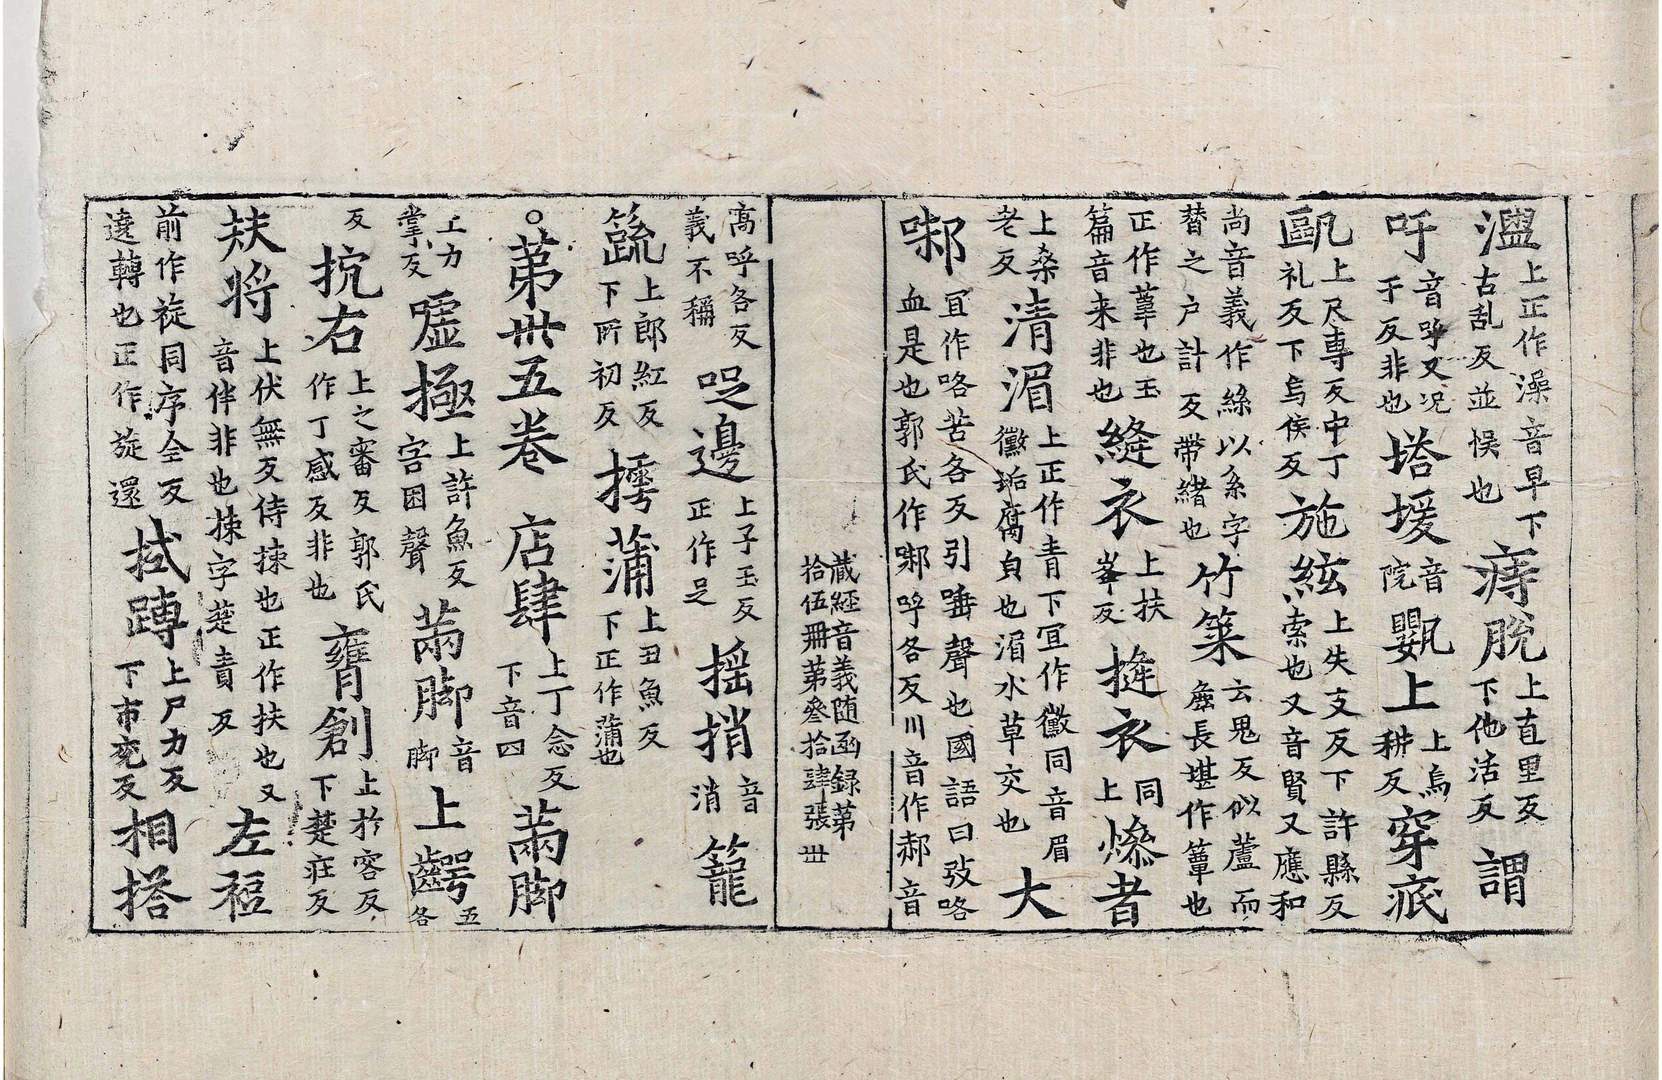 㵽上正作澡音早下古乱反並悮也 痔脫上直里反下他活反 謂
呼音呼又况于反非也 塔㙛音院 甖上上烏耕反 穿㡳
甌上尺專反中丁礼反下烏侯反 施絃上失支反下許縣反索也又音賢又應和
尚音義作絲以糸字替之户計反帶緒也 竹䇥云鬼反似蘆而麄長堪作簟也
正作葦也玉篇音来非也 縫衣上扶峯反 摓衣同上 㷮者
上桑老反 清湄上正作青下冝作黴同音眉黴垢腐負也湄水草交也 大
㖿冝作咯苦各反引唾聲也國語曰攷咯血是也郭氏作㖿呼各反川音作郝音
藏經音義随函録第拾伍冊第叄拾肆張 丗
高呼各反義不稱 哫邊上子玉反正作足 揺捎音消 籠
䟽上郎紅反下所初反 摴蒲上丑魚反下正作蒲也
○苐卅五卷 店肆上丁念反下音四 䓣脚
上力掌反 嘘極上許魚反字囯聲 䓣脚音脚 上齶五各
反 抗右上之審反郭氏作丁感反非也 㢕創上於容反下楚㽵反
扶將上伏無反侍揀也正作扶也又音伴非也揀字楚責反 左䄎
前作䙋同序全反遶轉也正作旋還 拭蹲上尸力反下市兖反 相搭